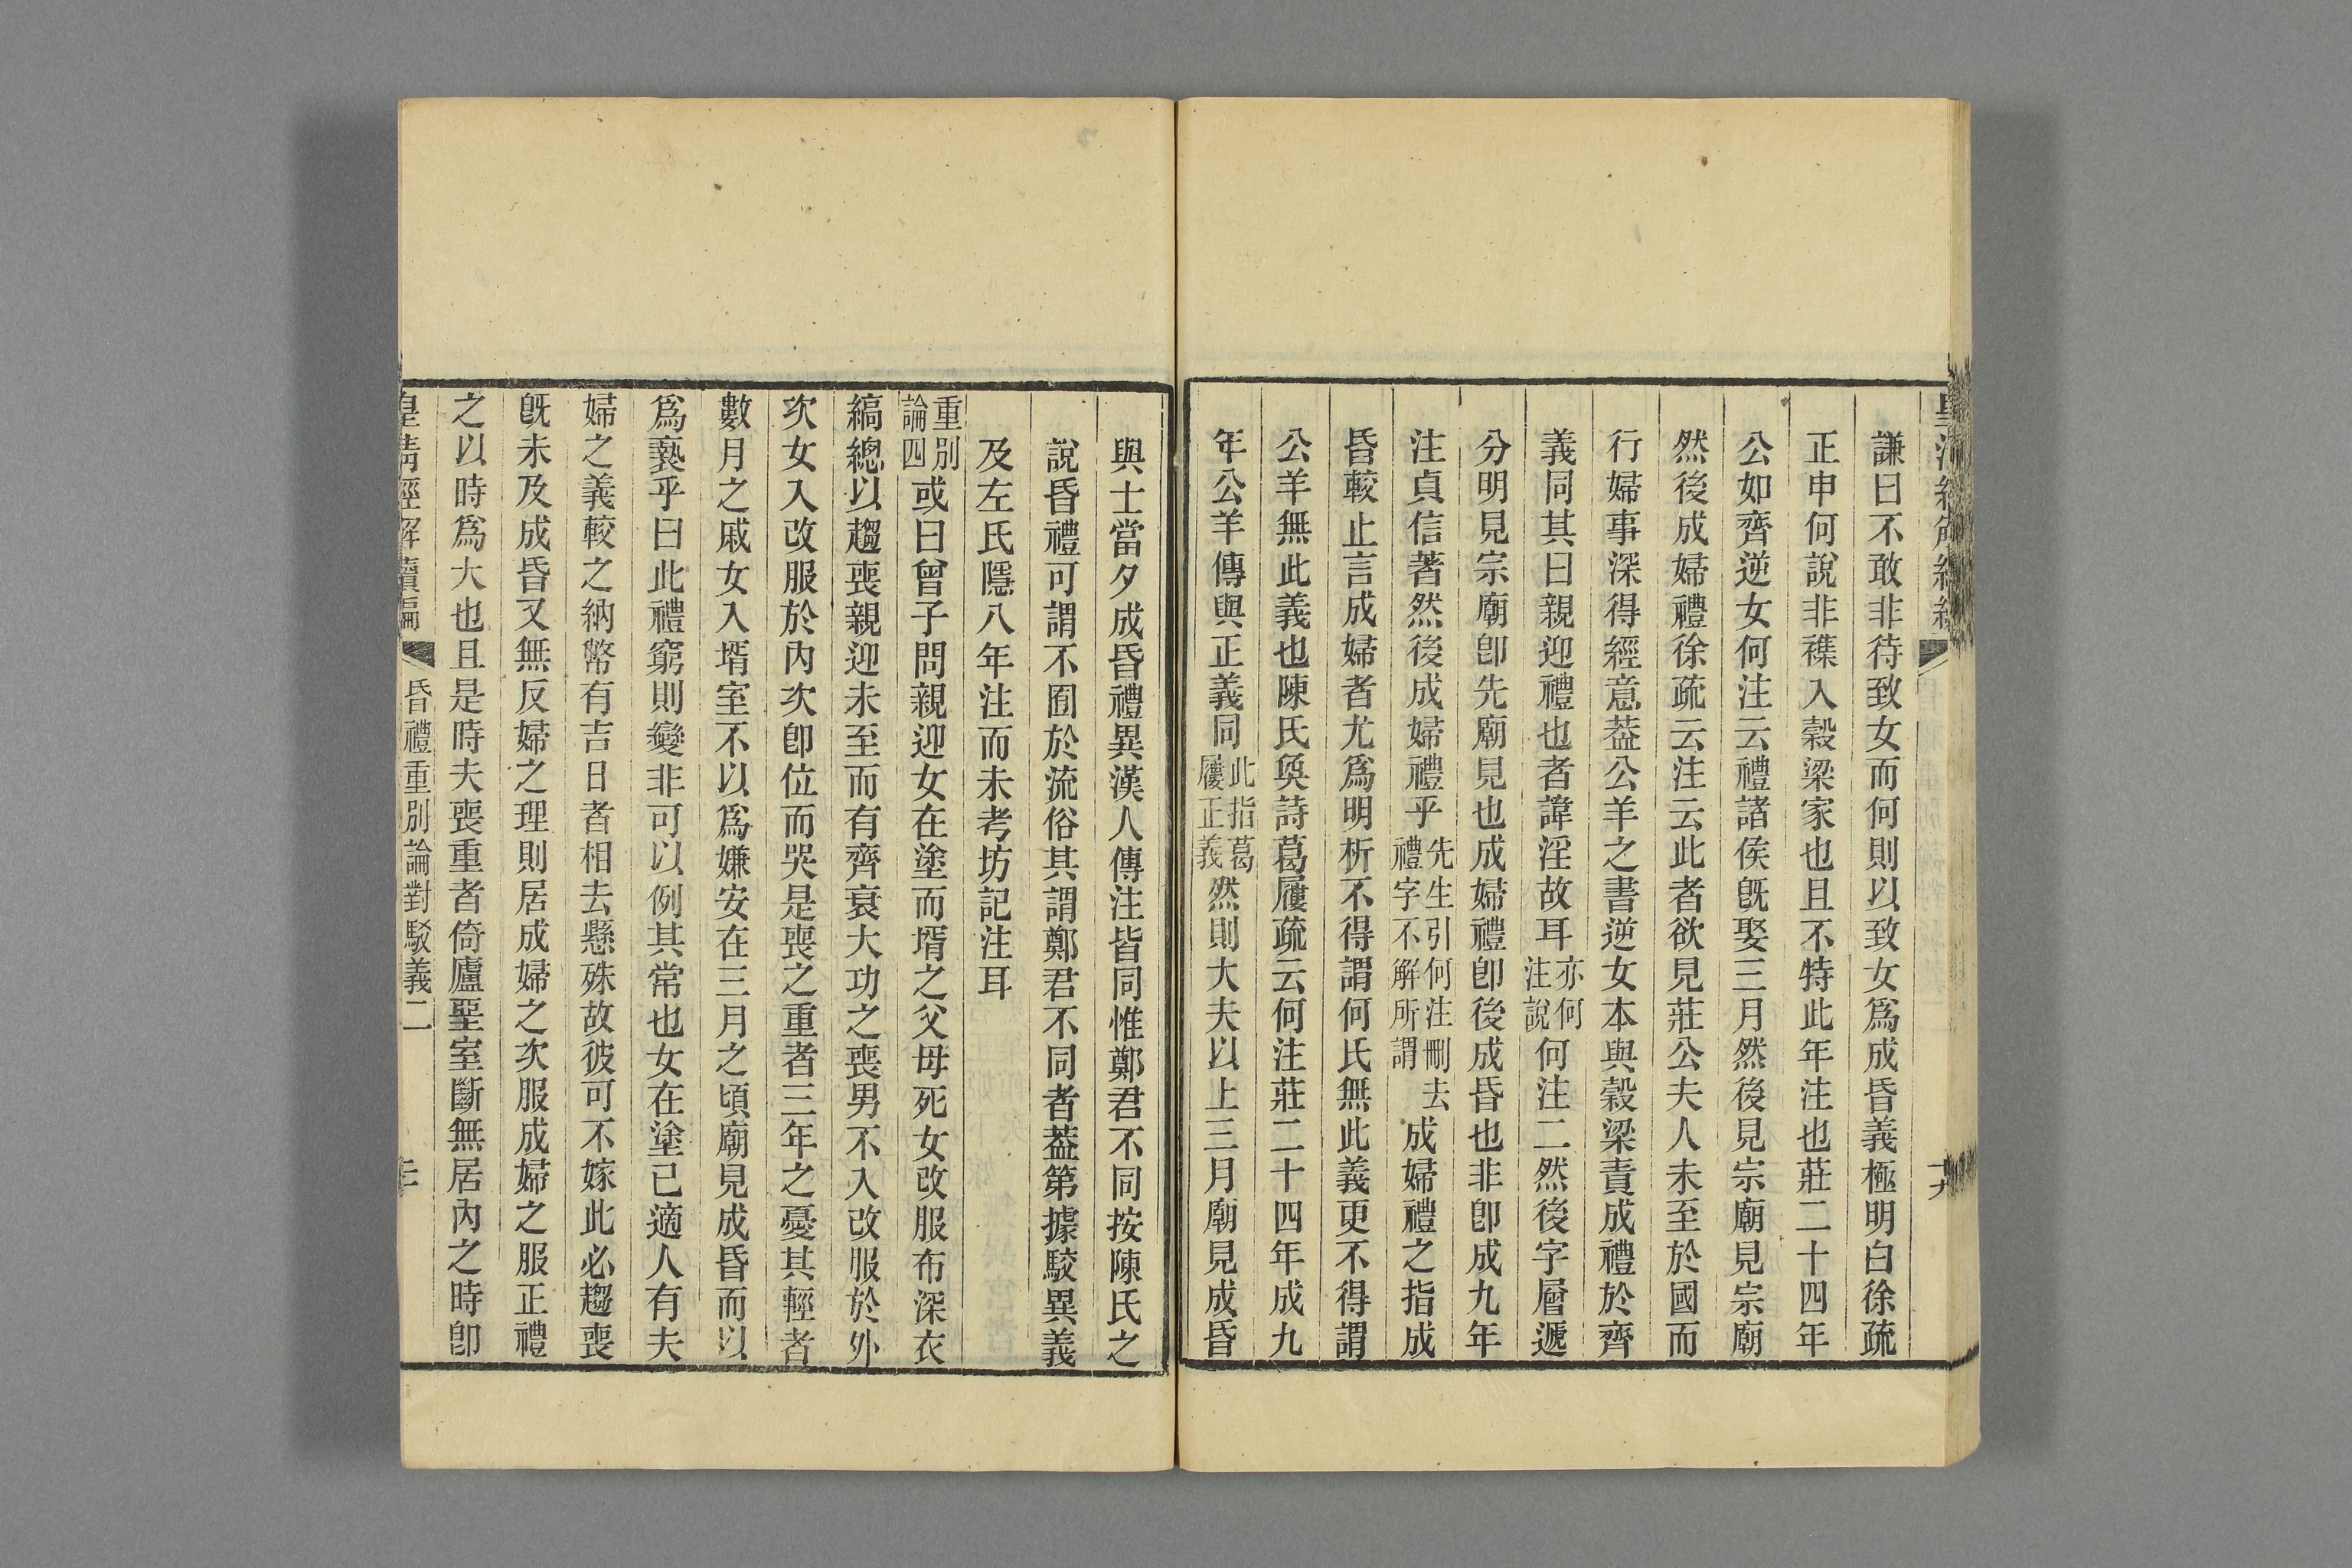 謙曰不敢非待致女而何則以致女爲成昏義極明白徐疏
正申何說非襍入穀梁家也且不特此年注也莊二十四年
公如齊逆女何注云禮諸侯旣娶三月然後見宗廟見宗廟
然後成婦禮徐疏云注云此者欲見莊公夫人未至於國而
行婦事深得經意葢公羊之書逆女本與穀梁責成禮於齊
義同其曰親迎禮也者諱淫故耳亦何注說何注二然後字層遞
分明見宗廟卽先廟見也成婦禮卽後成昏也非卽成九年
注貞信著然後成婦禮乎先生引何注刪去禮字不解所謂成婦禮之指成
昏較止言成婦者尤爲明析不得謂何氏無此義更不得謂
公羊無此義也陳氏奐詩葛屨疏云何注莊二十四年成九
年公羊傳與正義同此指葛屨正義然則大夫以上三月廟見成昏
與士當夕成昏禮異漢人傳注皆同惟鄭君不同按陳氏之
說昏禮可謂不囿於流俗其謂鄭君不同者葢第據駮異義
及左氏隱八年注而未考坊記注耳
重別論四或曰曾子問親迎女在塗而壻之父母死女改服布深衣
縞總以趨喪親迎未至而有齊衰大功之喪男不入改服於外
次女入改服於內次卽位而哭是喪之重者三年之憂其輕者
數月之戚女入壻室不以爲嫌安在三月之頃廟見成昏而以
爲褻乎曰此禮窮則變非可以例其常也女在塗已適人有夫
婦之義較之納幣有吉日者相去懸殊故彼可不嫁此必趨喪
旣未及成昏又無反婦之理則居成婦之次服成婦之服正禮
之以時爲大也且是時夫喪重者倚廬堊室斷無居內之時卽
皇清經解續編 昏禮重別論對駁義二